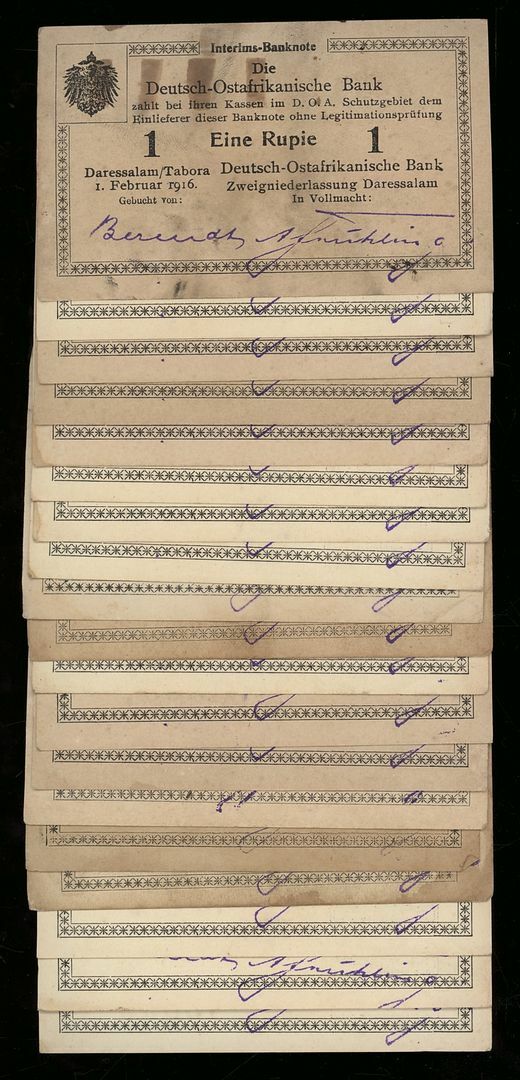 Interims-Banknote
Die
Deutsch-Ostafrikanische Bank
zahlt bei ihren Kassen im D. O. A. Schutzgebiet dem
Einlieferer dieser Banknote ohne Legitimationsprüfung
1 Eine Rupie 1
Daressalam/Tabora Deutsch-Ostafrikanische Bank
1. Februar 1916. Zweigniederlassung Daressalam
Gebucht von: In Vollmacht:
Berendt A Frühling